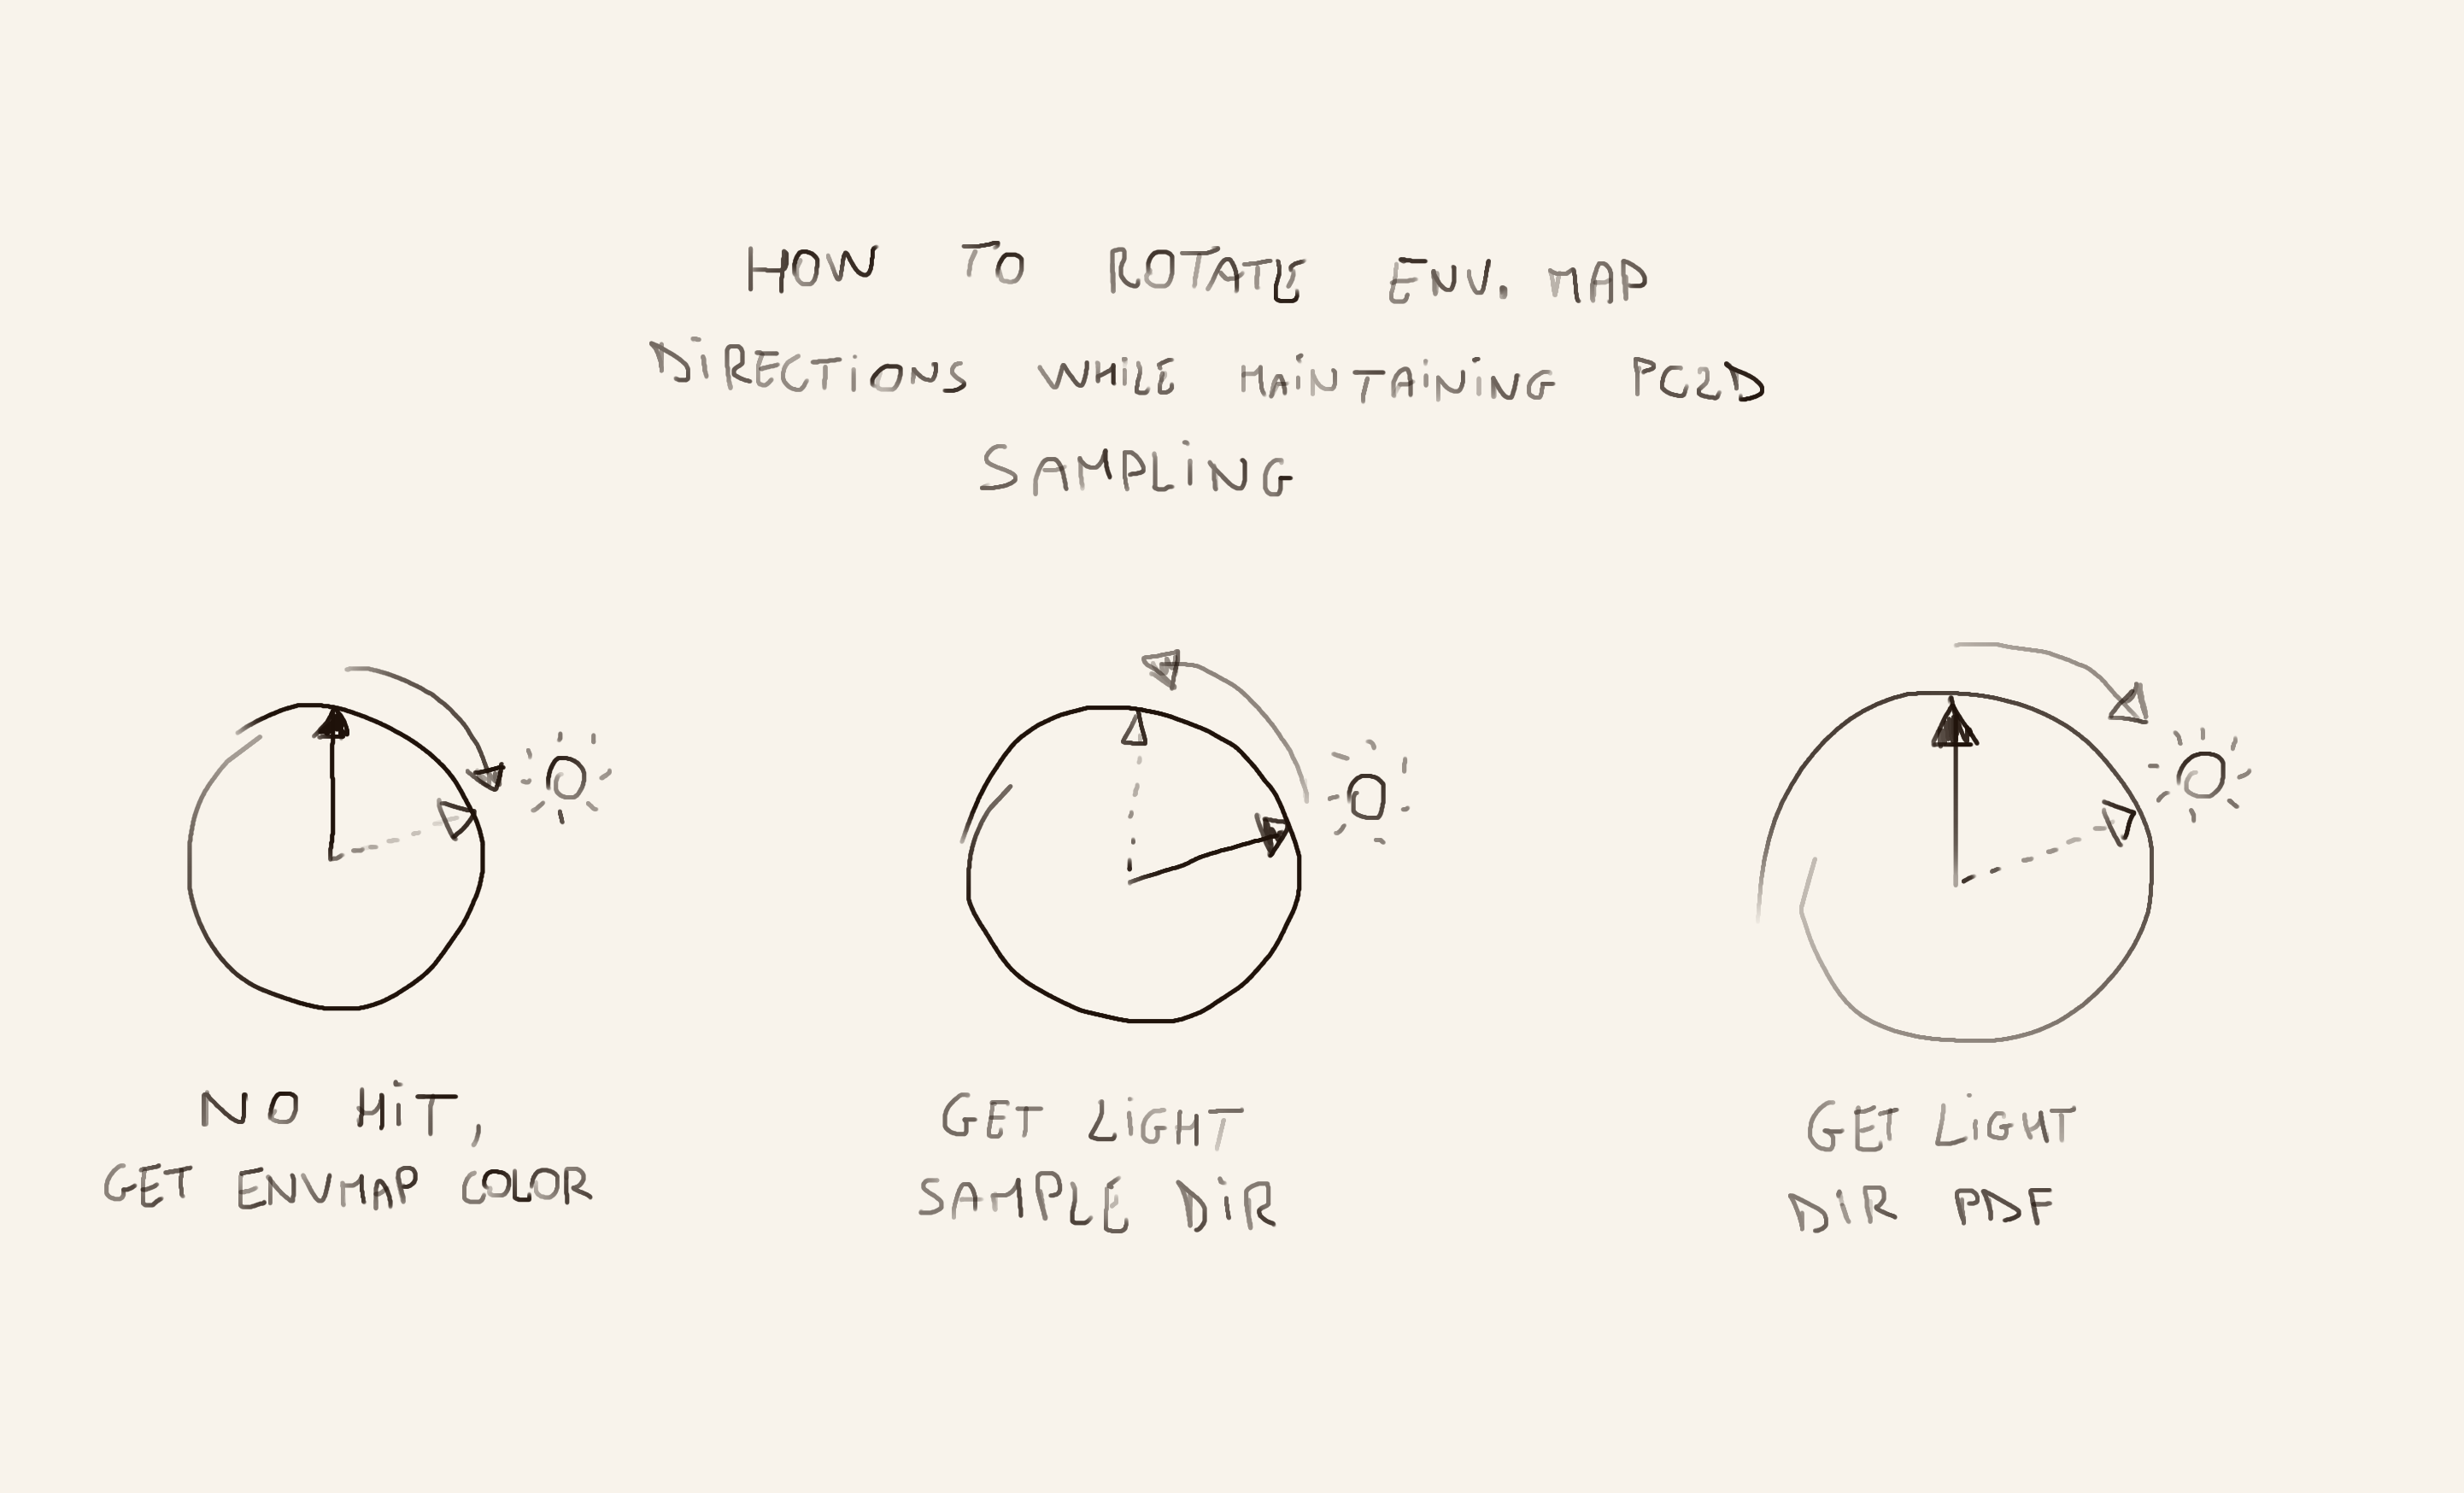 HOW TO ROTATE ENV. MAP
DiRECTiONS WHiLE MAiNTAiNiNG PC2D
SAMPLiNG
NO HiT,
GET ENVMAP COLOR
GET LiGHT
SAMPLE DiR
GET LiGHT
DiR PDF